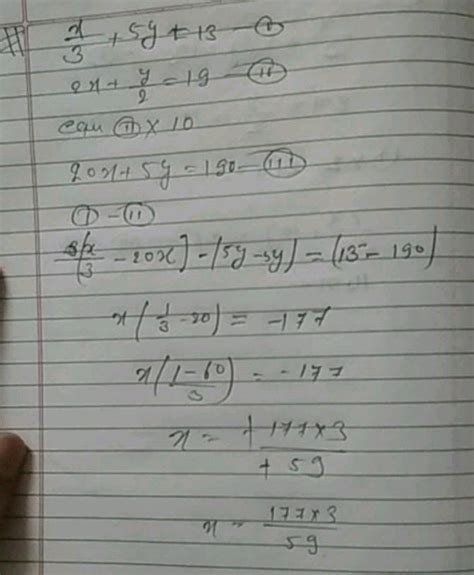 x/3 + 5y = 13 — Ⓘ
2x + y/2 = 19 — Ⓘⓘ
equ Ⓘⓘ × 10
20x + 5y = 190 — Ⓘⓘⓘ
Ⓘ - Ⓘⓘ
[x/3 - 20x] - (5y - 5y) = (13 - 190)
x(1/3 - 20) = -177
x((1-60)/3) = -177
x = + 177×3 / + 59
x = 177×3 / 59